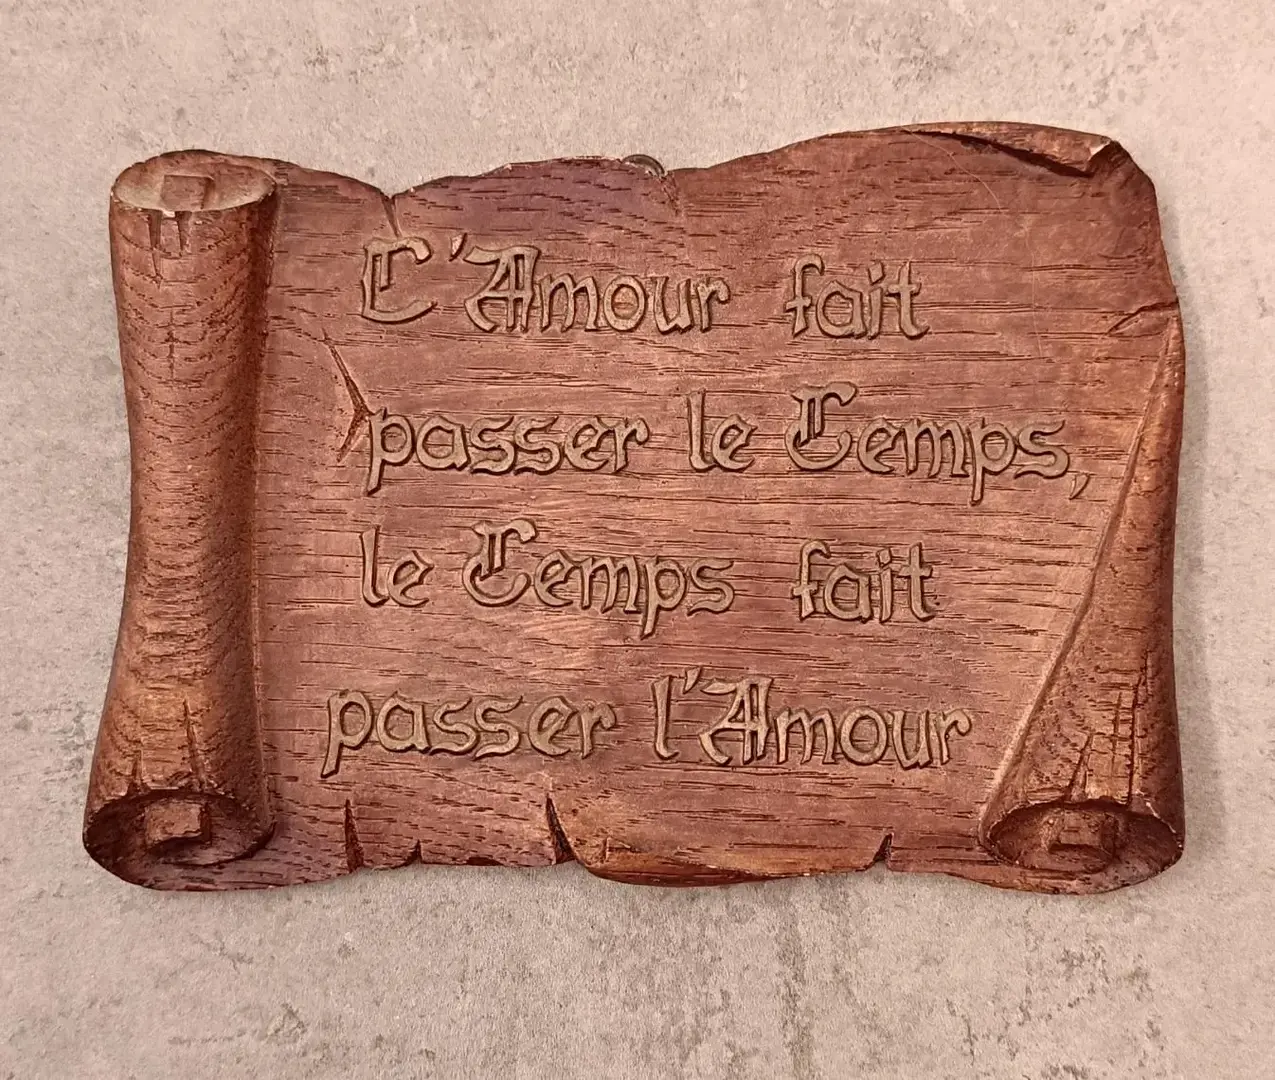 L'Amour fait
passer le Temps,
le Temps fait
passer l'Amour